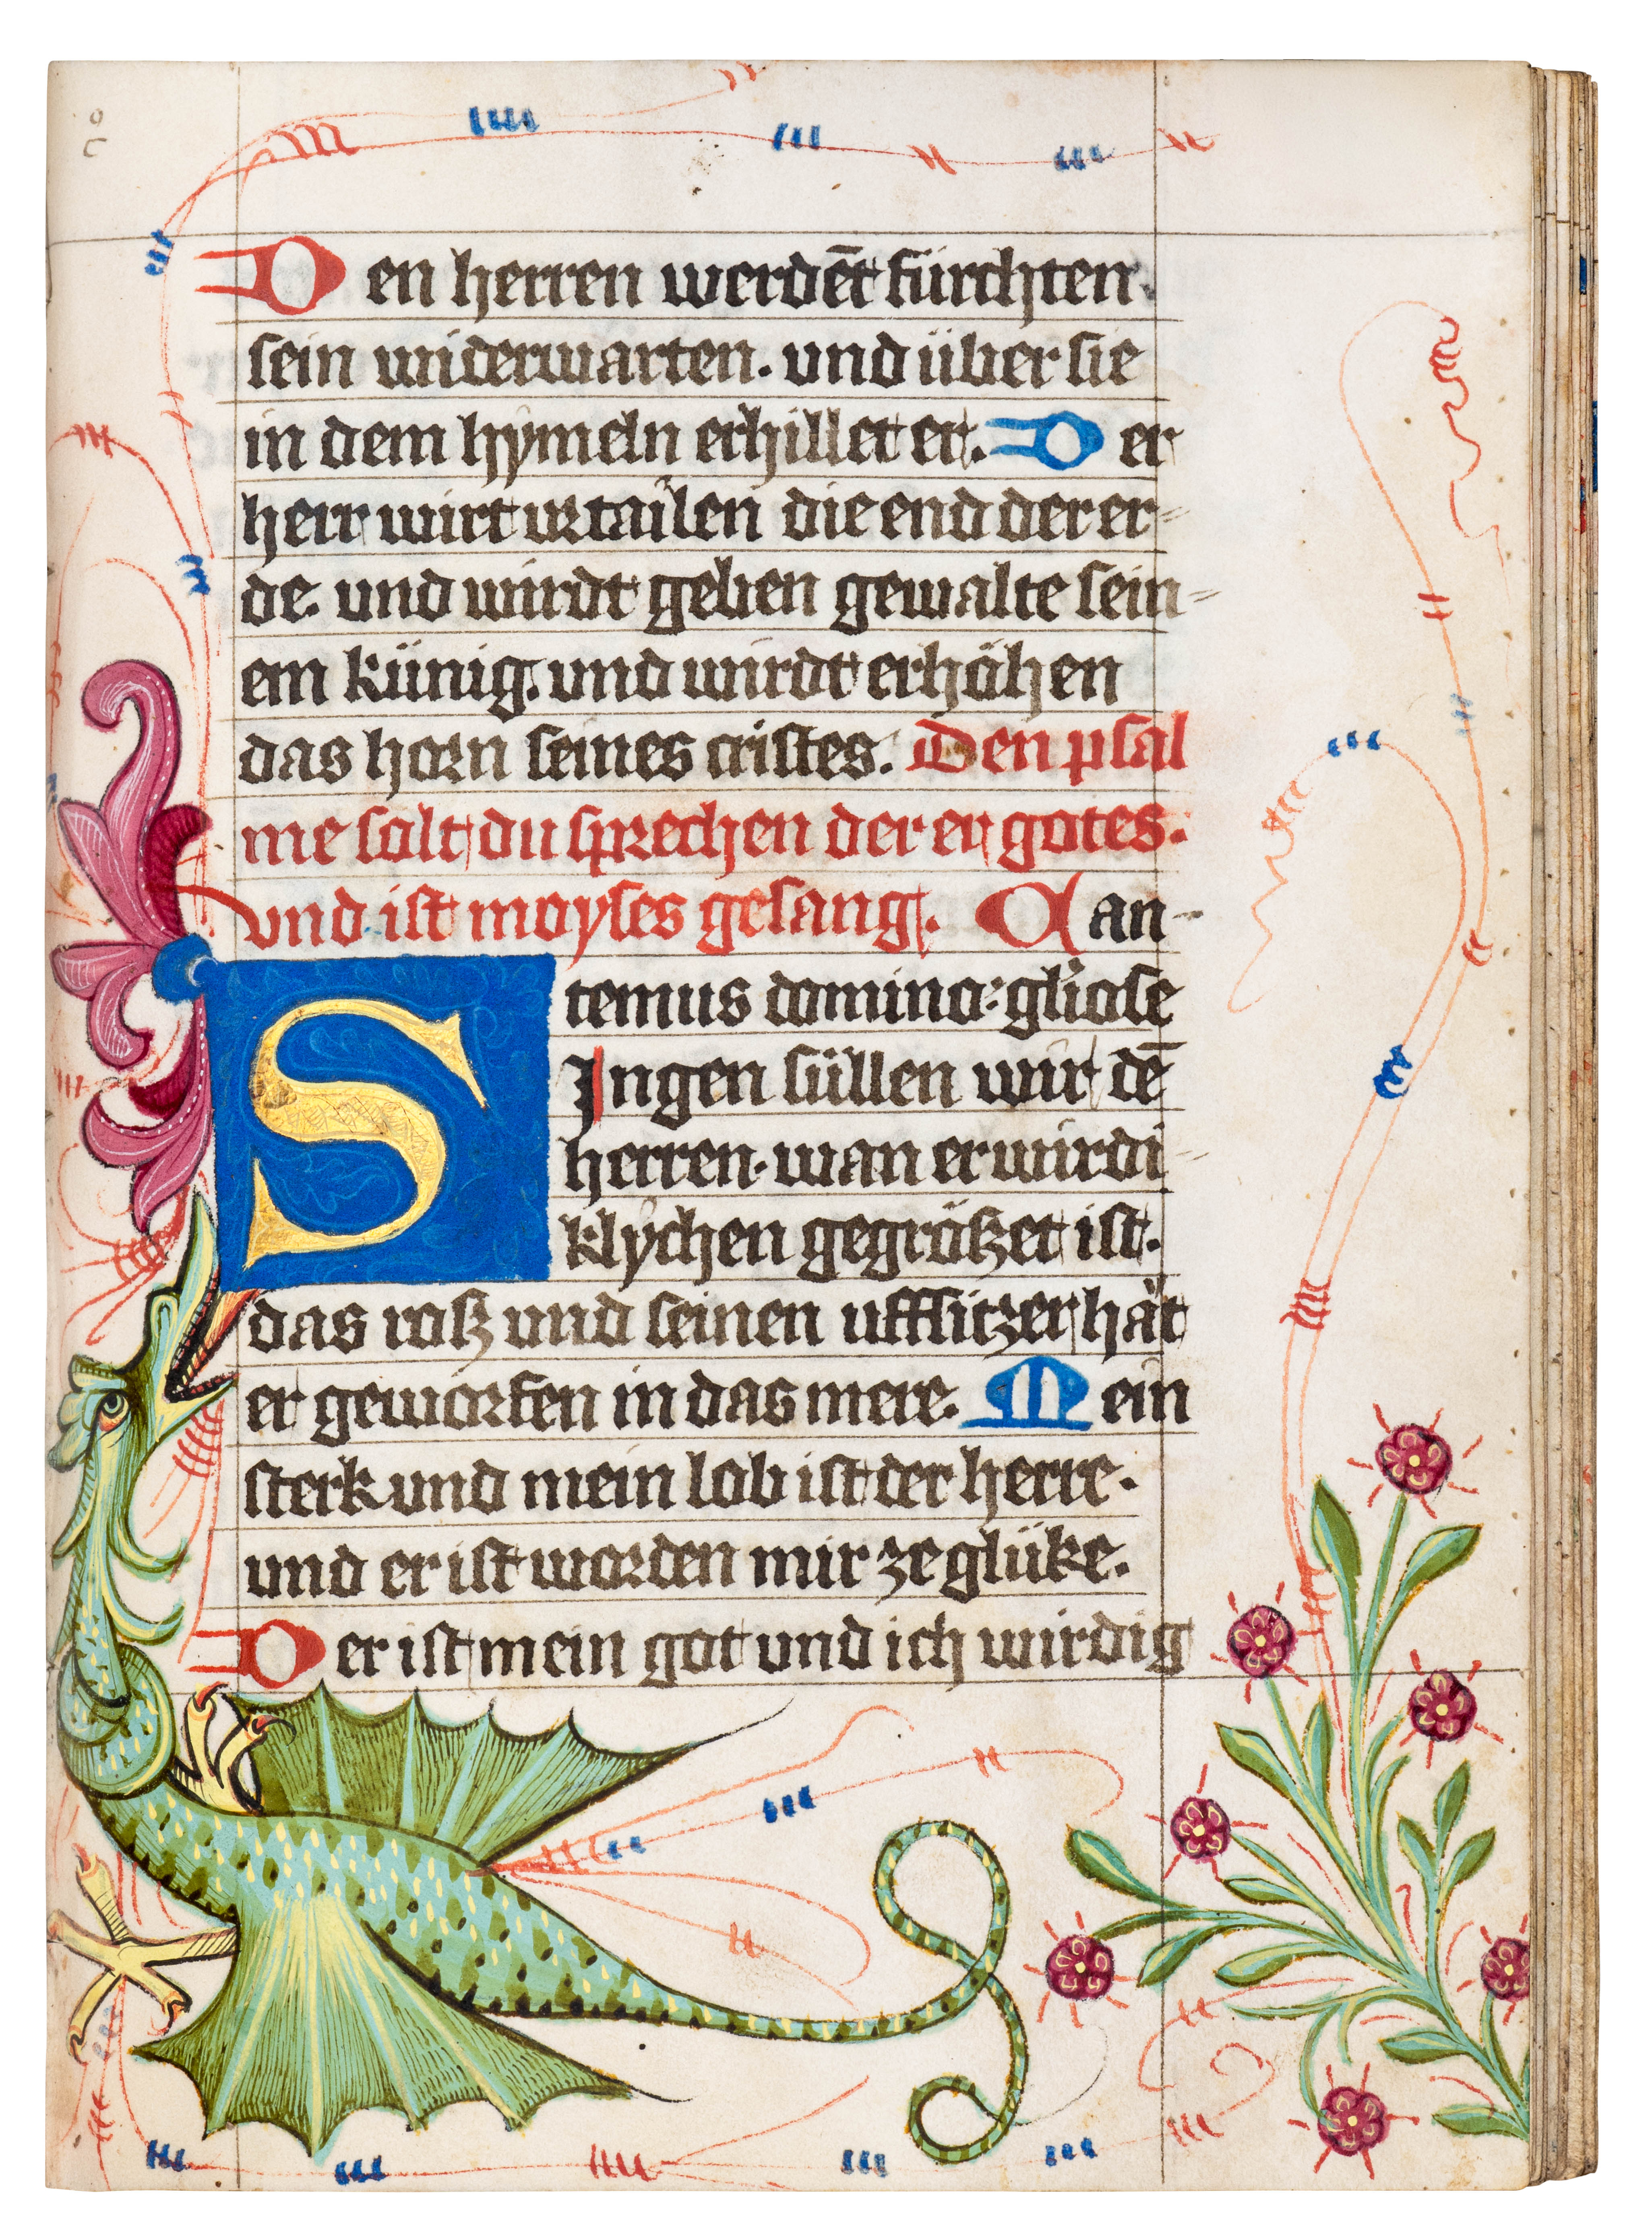 Den herren werdēt fürchten.
sein widerwarten. und über sie
in dem hymeln erhillet er. Der
herr wirt urtailen die end der er-
de. und wirdt geben gewalte sein-
em künig. und wirdt erhöhen
das horn seines cristes. Den psal
me solt du sprechen der er gotes.
und ist moyses gesang. Can-
temus domino: gl'iose
Singen süllen wir dē
herren. wan er wirdi-
klychen gegrößet ist.
das roß und seinen uffsitzer hät
er geworfen in das mere. Mein
sterk und mein lob ist der herre.
und er ist worden mir ze glüke.
Der ist mein got und ich wirdig